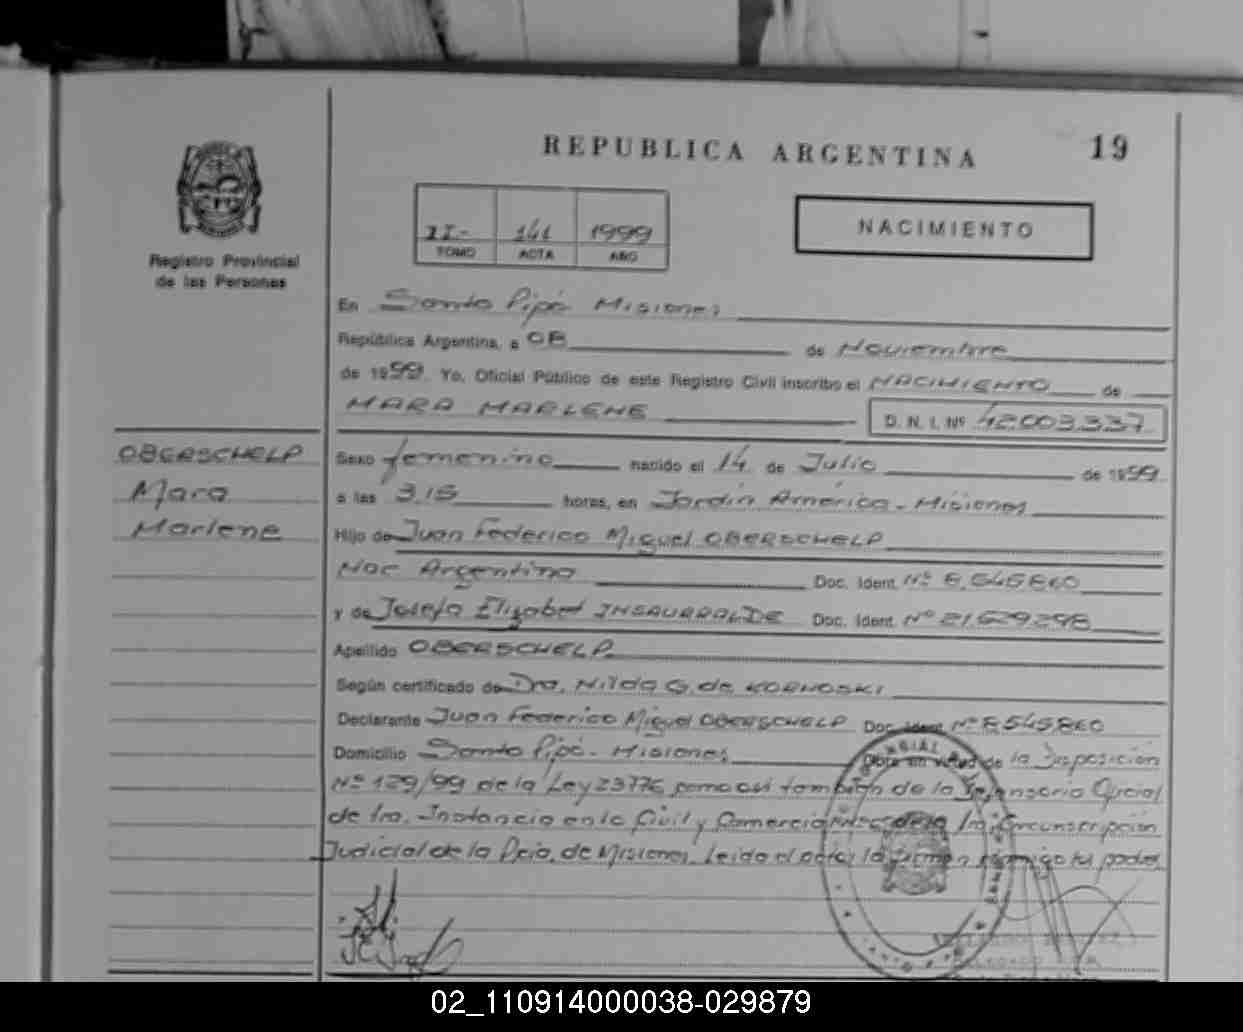 REPUBLICA ARGENTINA
19
Registro Provincial
de las Personas
II.- 141 1999
TOMO ACTA AÑO
NACIMIENTO
En Santo Pipó Misiones
República Argentina, a 08 de Noviembre
de 1999. Yo, Oficial Público de este Registro Civil inscribo el NACIMIENTO de
MARA MARLENE D. N. I. Nº 42.003.337
OBERSCHELP
Mara
Marlene
Sexo femenino nacido el 14 de Julio de 1999
a las 3,15 horas, en Jardín América - Misiones
Hijo de Juan Federico Miguel OBERSCHELP
Nac Argentina Doc. Ident. Nº 8.545.860
y de Josefa Elizabet INSAURRALDE Doc. Ident. Nº 21.629.298
Apellido OBERSCHELP
Según certificado de Dra. Nilda G. de KORNOSKI
Declarante Juan Federico Miguel OBERSCHELP Doc. Ident. Nº 8.545.860
Domicilio Santo Pipó - Misiones Obra en virtud de la Disposición
Nº 129/99 de la Ley 23776, como así también de la Defensoría Oficial
de 1ra. Instancia en lo Civil y Comercial de la 1ra. Circunscripción
Judicial de la Pcia. de Misiones. Leída el acta, la firman conmigo los padres
02_110914000038-029879